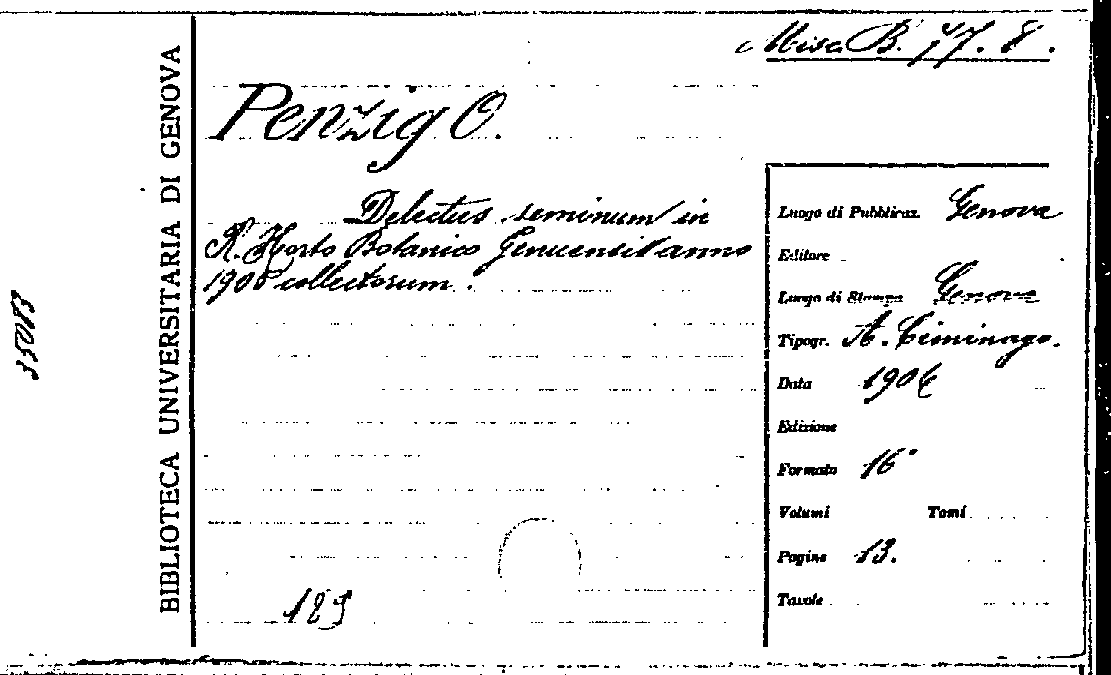 Misc B. 77. 8.
Penzig O.
Delectus seminum in
R. Horto Botanico Genuensi anno
collectorum.
189
BIBLIOTECA UNIVERSITARIA DI GENOVA
35083
Luogo di Pubblicaz. Genova
Editore
Luogo di Stampa Genova
Tipogr. A. Ciminago.
Data 1906
Edizione
Formato 16°
Volumi Tomi
Pagine 13.
Tavole